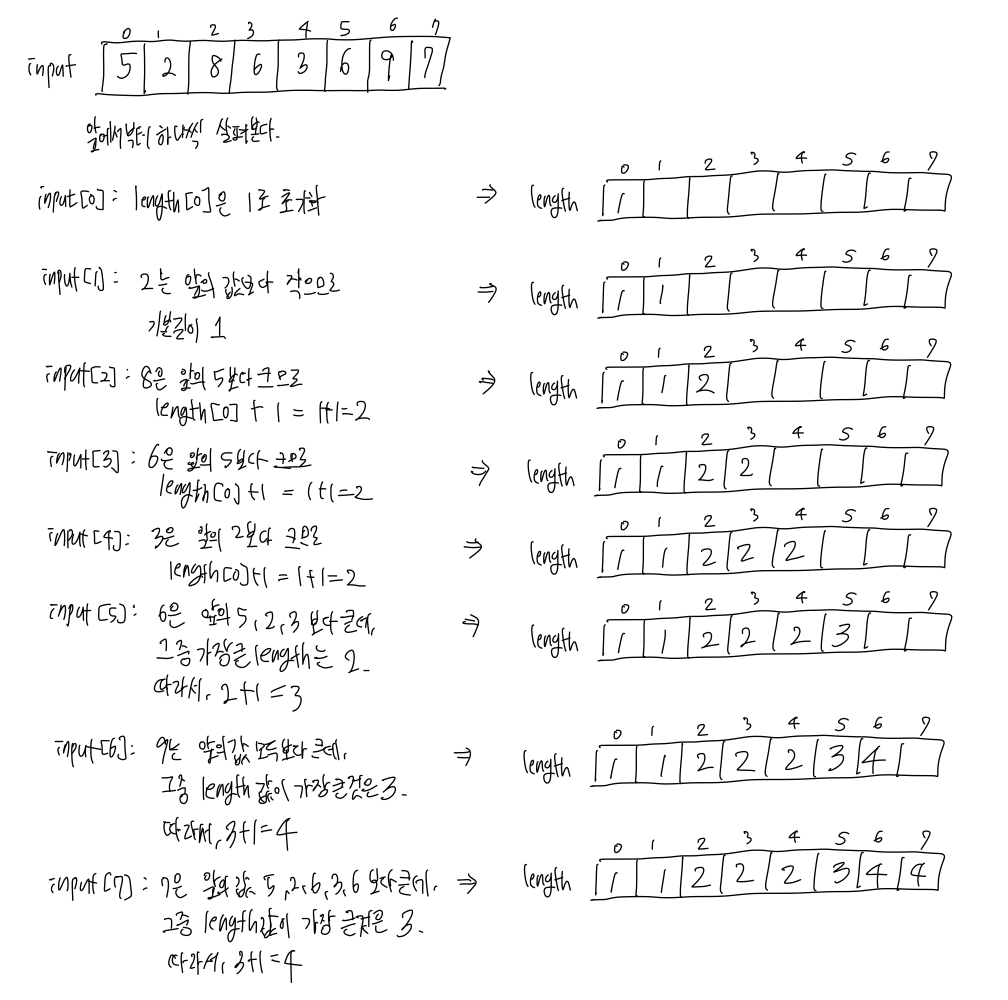 0 1 2 3 4 5 6 7
input 5 2 8 6 3 6 9 7
앞에서부터 하나씩 살펴본다.
0 1 2 3 4 5 6 7
input[0] : length[0]은 1로 초기화 ⇒ length 1
0 1 2 3 4 5 6 7
input[1] : 2는 앞의 값보다 작으므로 ⇒ length 1 1
기본길이 1
0 1 2 3 4 5 6 7
input[2] : 8은 앞의 5보다 크므로 ⇒ length 1 1 2
length[0] + 1 = 1+1=2
0 1 2 3 4 5 6 7
input[3] : 6은 앞의 5보다 크므로 ⇒ length 1 1 2 2
length[0]+1 = 1+1=2
0 1 2 3 4 5 6 7
input[4] : 3은 앞의 2보다 크므로 ⇒ length 1 1 2 2 2
length[0]+1 = 1+1=2
0 1 2 3 4 5 6 7
input[5] : 6은 앞의 5, 2, 3 보다 큰데, ⇒ length 1 1 2 2 2 3
그중 가장큰 length는 2.
따라서, 2+1=3
0 1 2 3 4 5 6 7
input[6] : 9는 앞의 값 모두보다 큰데, ⇒ length 1 1 2 2 2 3 4
그중 length 값이 가장큰것은 3.
따라서, 3+1=4
0 1 2 3 4 5 6 7
input[7] : 7은 앞의 값 5, 2, 6, 3, 6 보다 큰데, ⇒ length 1 1 2 2 2 3 4 4
그중 length값이 가장 큰것은 3.
따라서, 3+1=4